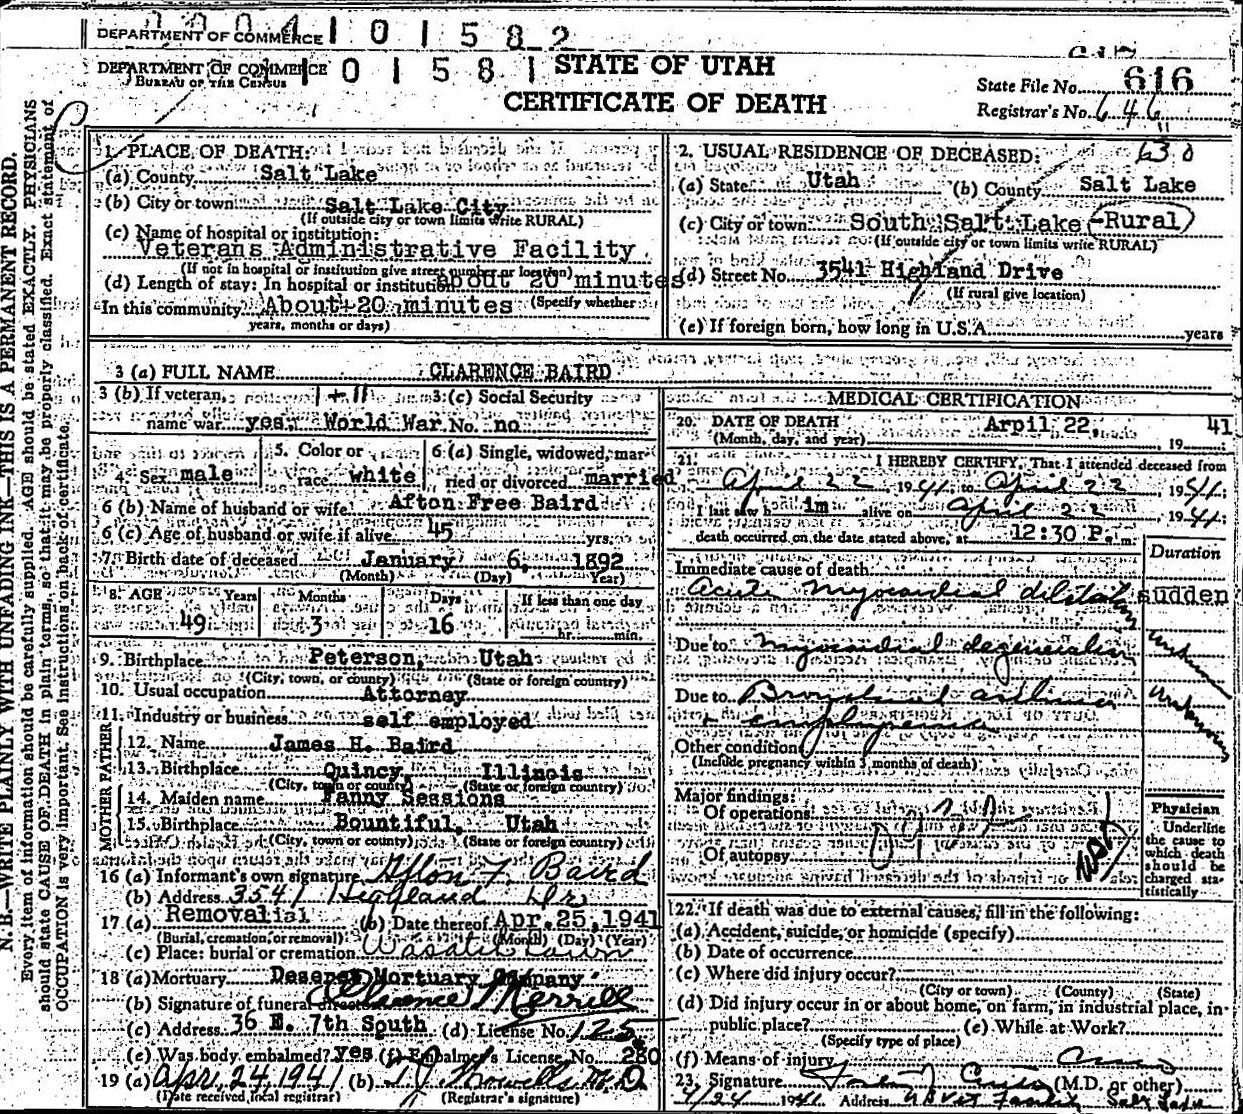 DEPARTMENT OF COMMERCE 1 0 1 5 8 2
DEPARTMENT OF COMMERCE 1 0 1 5 8 1
BUREAU OF THE CENSUS
STATE OF UTAH
CERTIFICATE OF DEATH
State File No. 616
Registrar's No. 646
N. B.—WRITE PLAINLY WITH UNFADING INK—THIS IS A PERMANENT RECORD.
Every item of information should be carefully supplied. AGE should be stated EXACTLY. PHYSICIANS
should state CAUSE OF DEATH in plain terms, so that it may be properly classified. Exact statement of
OCCUPATION is very important. See instructions on back of certificate.
1. PLACE OF DEATH:
(a) County Salt Lake
(b) City or town Salt Lake City
(If outside city or town limits write RURAL)
(c) Name of hospital or institution:
Veterans Administrative Facility
(If not in hospital or institution give street number or location)
(d) Length of stay: In hospital or institution about 20 minutes
In this community About 20 minutes (Specify whether
years, months or days)
2. USUAL RESIDENCE OF DECEASED: 630
(a) State Utah (b) County Salt Lake
(c) City or town South Salt Lake -Rural
(If outside city or town limits write RURAL)
(d) Street No. 3541 Highland Drive
(If rural give location)
(e) If foreign born, how long in U.S.A. years
3 (a) FULL NAME CLARENCE BAIRD
3 (b) If veteran, 3 (c) Social Security
name war yes, World War No. no
4. Sex male 5. Color or race white 6 (a) Single, widowed, married or divorced married
6 (b) Name of husband or wife Afton Free Baird
6 (c) Age of husband or wife if alive 45 yrs.
7. Birth date of deceased January 6, 1892
(Month) (Day) Year)
8. AGE Years Months Days If less than one day
49 3 16 hr. min.
9. Birthplace Peterson, Utah
(City, town, or county) (State or foreign country)
10. Usual occupation Attorney
11. Industry or business self employed
FATHER
12. Name James H. Baird
13. Birthplace Quincy, Illinois
(City, town or county) (State or foreign country)
MOTHER
14. Maiden name Fanny Sessions
15. Birthplace Bountiful, Utah
(City, town or county) (State or foreign country)
16 (a) Informant's own signature Afton F. Baird
(b) Address 3541 Highland Dr.
17 (a) Removal (b) Date thereof Apr. 25, 1941
(Burial, cremation, or removal) (Month) (Day) (Year)
(c) Place: burial or cremation Wasatch Lawn
18 (a) Mortuary Deseret Mortuary Company
(b) Signature of funeral Clarence Merrill
(c) Address 36 E. 7th South (d) License No. 125
(e) Was body embalmed? yes (f) Embalmer's License No. 280
19 (a) Apr. 24, 1941 (b) M.D.
(Date received, local registrar) (Registrar's signature)
MEDICAL CERTIFICATION
20. DATE OF DEATH Arpil 22, 19 41
(Month, day, and year)
21. I HEREBY CERTIFY, That I attended deceased from
April 22 1941 to April 22, 1941
I last saw h im alive on April 22, 1941
death occurred on the date stated above, at 12:30 P. m.
Duration
Immediate cause of death
Acute myocardial dilatation sudden
Due to myocardial degeneration unknown
Due to Bronchial asthma unknown
+ emphysema
Other condition
(Include pregnancy within 3 months of death)
Major findings:
Of operations
Of autopsy
Physician
Underline
the cause to
which death
should be
charged sta-
tistically
22. If death was due to external causes, fill in the following:
(a) Accident, suicide, or homicide (specify)
(b) Date of occurrence
(c) Where did injury occur?
(City or town) (County) (State)
(d) Did injury occur in or about home, on farm, in industrial place, in
public place? (e) While at Work?
(Specify type of place)
(f) Means of injury
23. Signature (M.D. or other)
4/24 1941 Address Salt Lake